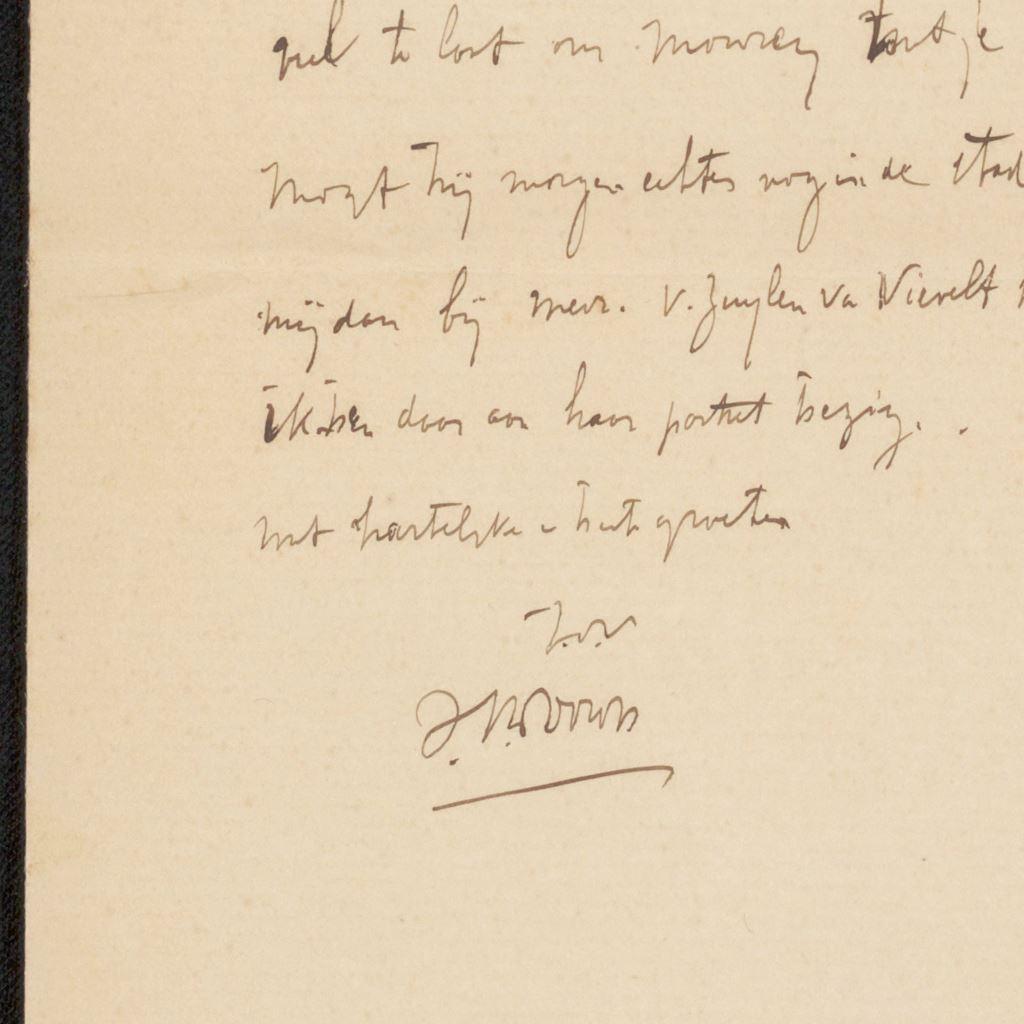 te laat om
Mogt hij morgen echter nog in de stad
mij dan bij mevr. v. Zuylen va Nievelt
ik ben daar aan haar portret bezig.
met hartelijke groeten
t.a.v.